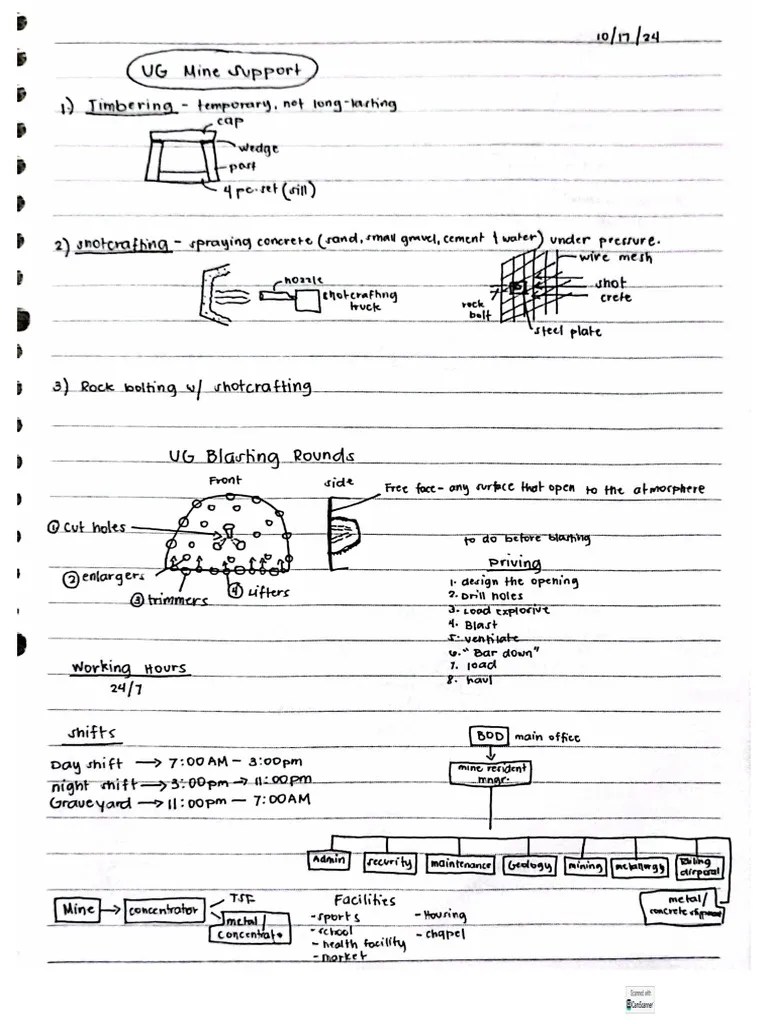 10/17/24
UG Mine Support
1.) Timbering - temporary, not long-lasting
cap
wedge
post
4 pc-set (sill)
2) shotcrafting - spraying concrete (sand, small gravel, cement & water) under pressure.
wire mesh
nozzle
shotcrafting truck
shot crete
rock bolt
steel plate
3) Rock bolting w/ shotcrafting
UG Blasting Rounds
Front
side
Free face - any surface that open to the atmosphere
① cut holes
② enlargers
③ trimmers
④ Lifters
to do before blasting
Driving
1. design the opening
2. Drill holes
3. Load explosive
4. Blast
5. ventilate
6. "Bar down"
7. load
8. haul
Working Hours
24/7
shifts
Day shift → 7:00AM - 3:00pm
night shift → 3:00pm → 11:00pm
Graveyard → 11:00pm - 7:00AM
BOD main office
mine resident mngr.
Admin
security
maintenance
Geology
mining
metallurgy
disposal
metal/
Mine → concentrator
TSF
metal/
concentrate
Facilities
- sports
- school
- health facility
- market
- Housing
- chapel
Scanned with
CamScanner